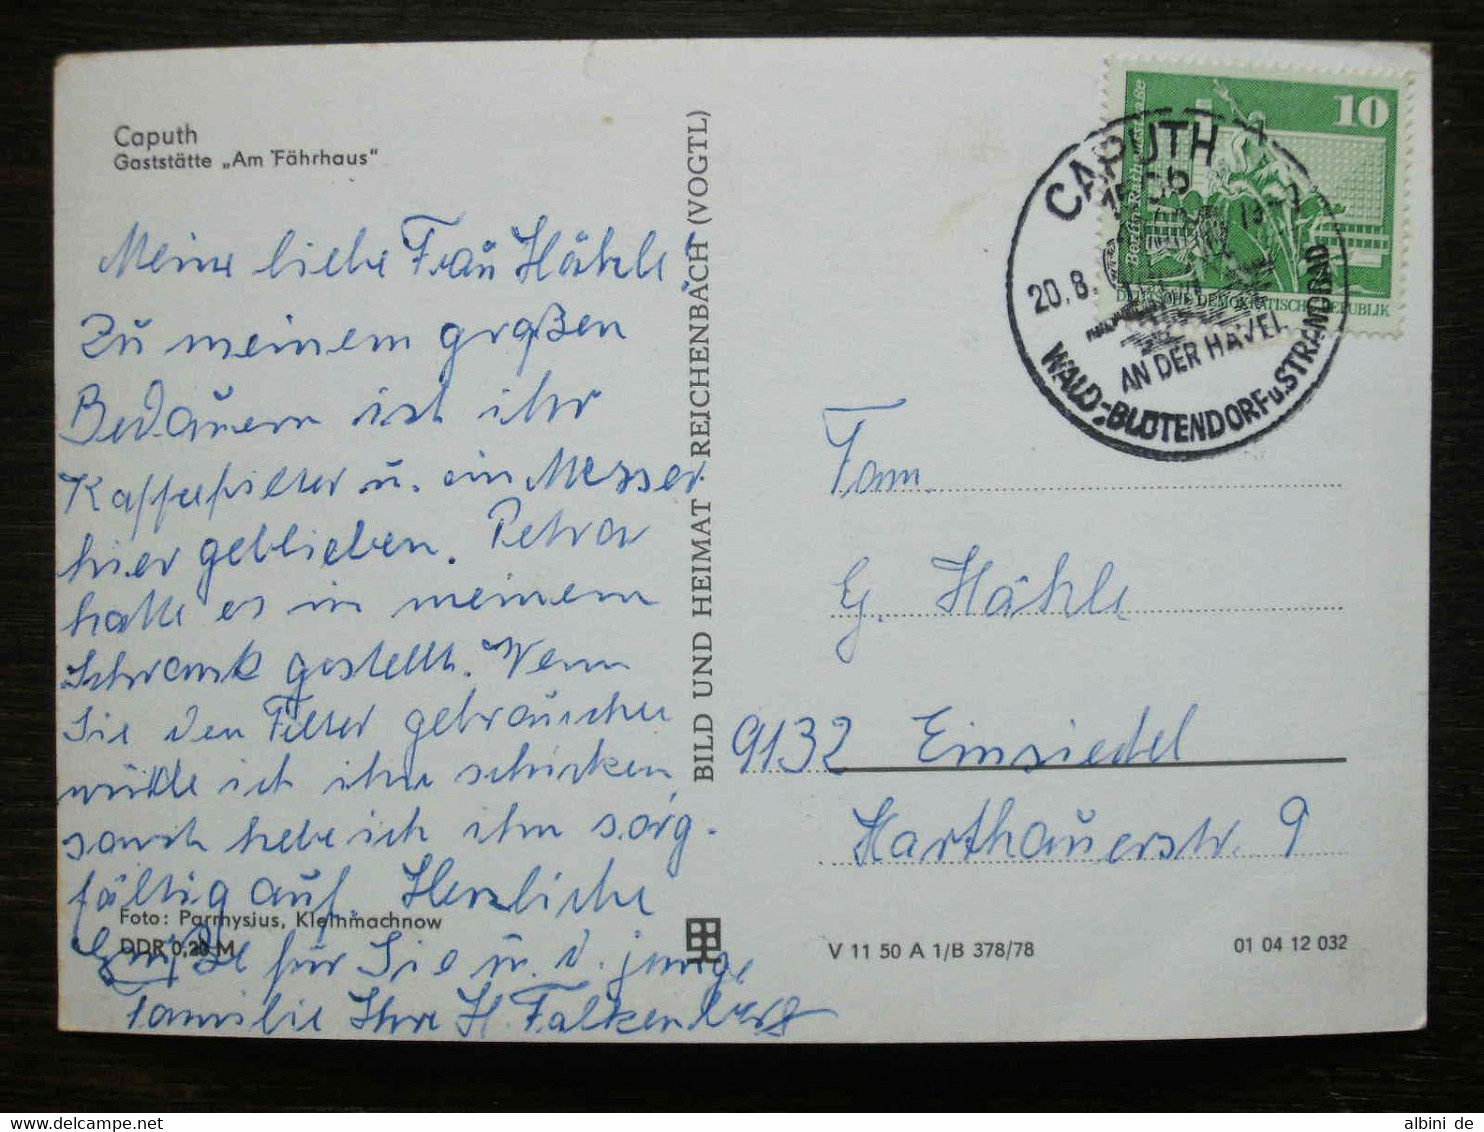 Caputh
Gaststätte „Am Fährhaus"
Meine liebe Frau Hähle
Zu meinem großen
Bedauern ist ihr
Kaffeefilter u. ein Messer
hier geblieben. Petra
hatte es in meinem
Schrank gestellt. Wenn
Sie den Filter gebrauchen
würde ich ihn schicken,
sonst hebe ich ihn sorg-
fältig auf. Herzliche
Grüße für Sie u. d. junge
Familie Ihre H. Falkenberg
Foto: Parmysius, Kleinmachnow
DDR 0,20 M
BILD UND HEIMAT REICHENBACH (VOGTL)
10
DEUTSCHE DEMOKRATISCHE REPUBLIK
CAPUTH
1506
20.8.
AN DER HAVEL
WALD-BLÜTENDORF u. STRANDBAD
Fam.
G. Hähle
9132 Einsiedel
Harthauerstr. 9
V 11 50 A 1/B 378/78
01 04 12 032
albini de